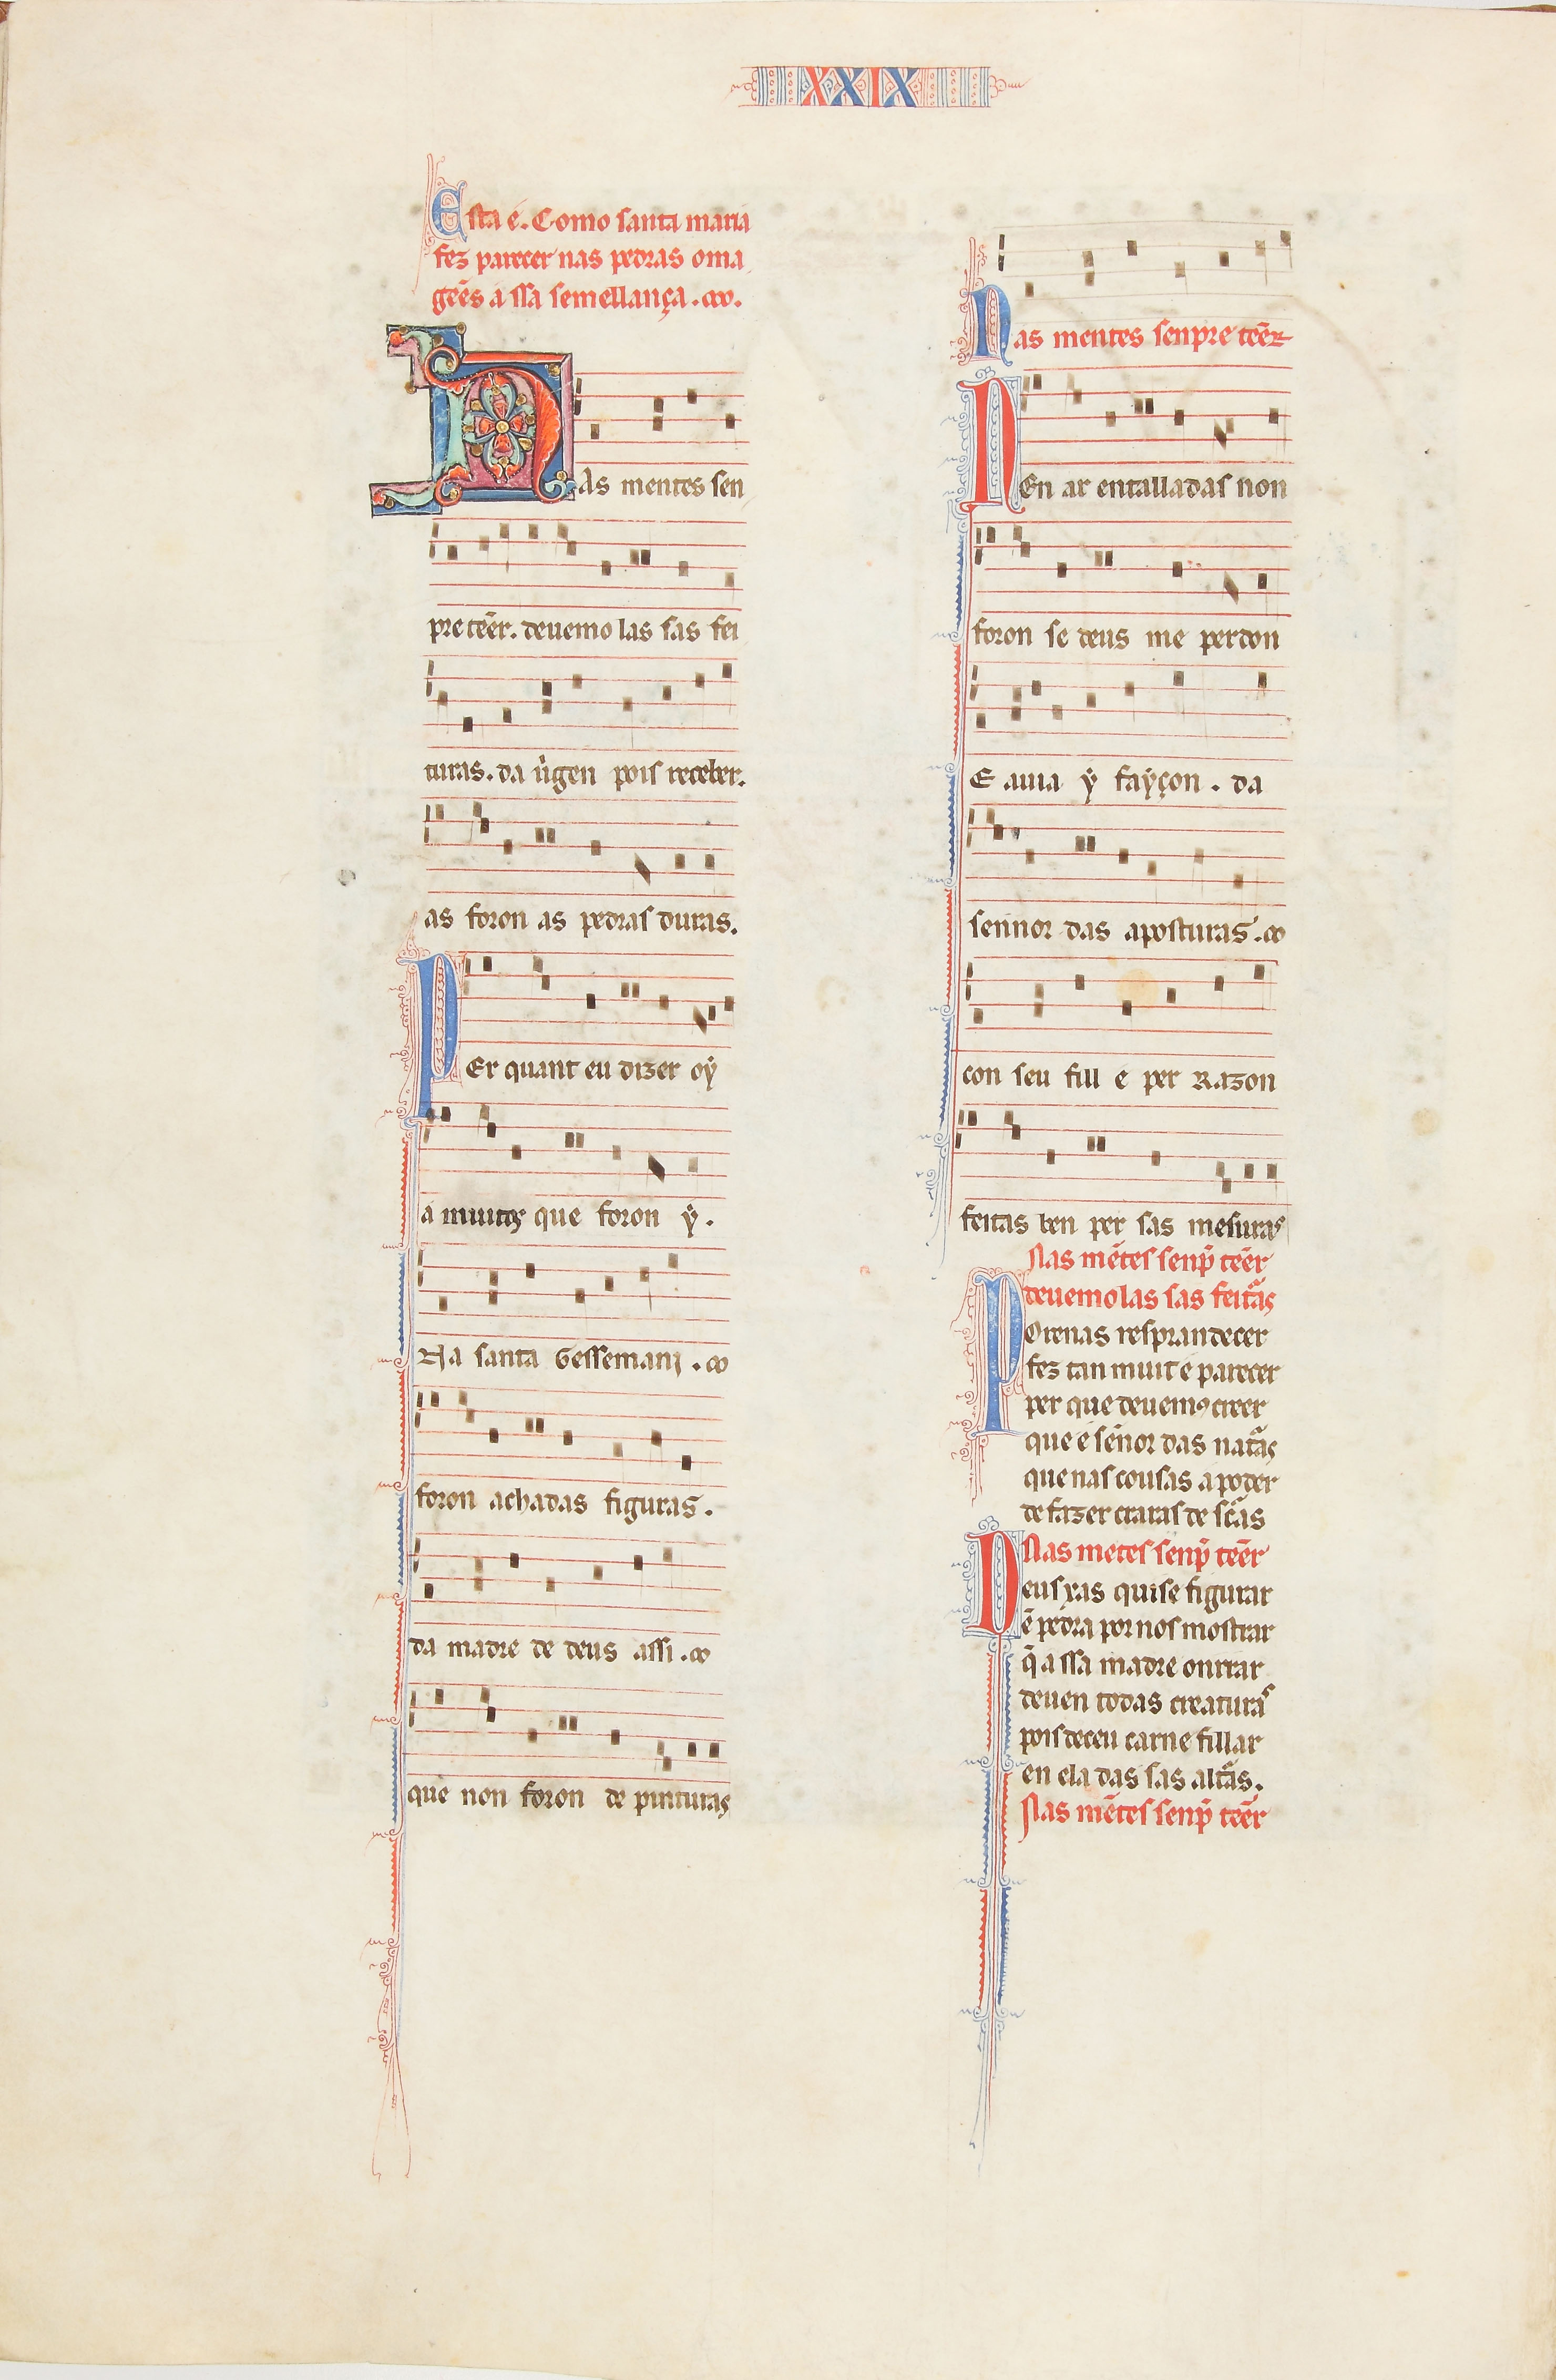 XXIX
Esta é. Como santa maria
fez parecer nas pedras oma
gẽes a ssa semellança.
NAs mentes sen
pre tẽer. deuemo las sas fei
turas. da uirgen pois receber.
as foron as pedras duras.
PEr quant eu dizer oý
a muitos que foron ý.
Na santa Gessemanj.
foron achadas figuras.
da madre de deus assi.
que non foron de pinturas
Nas mentes senpre tẽer
NEn ar entalladas non
foron se deus me perdon
E auia ý fayçon. da
sennor das aposturas.
con seu fill e per Razon
feitas ben per sas mesuras
Nas mẽtes senp̃ tẽer
deuemo las sas feitũas
POrenas resprandecer
fez tan muit e parecer
per que deuemꝰ creer
que é sẽnor das natũas
que nas cousas a poder
de fazer craras de scũas
Nas metes senp̃ tẽer
Deus xas quise figurar
ẽ pedra por nos mostrar
q̃ a ssa madre onrrar
deuen todas creaturas
pois deceu carne fillar
en ela das sas altũas.
Nas mẽtes senp̃ tẽer